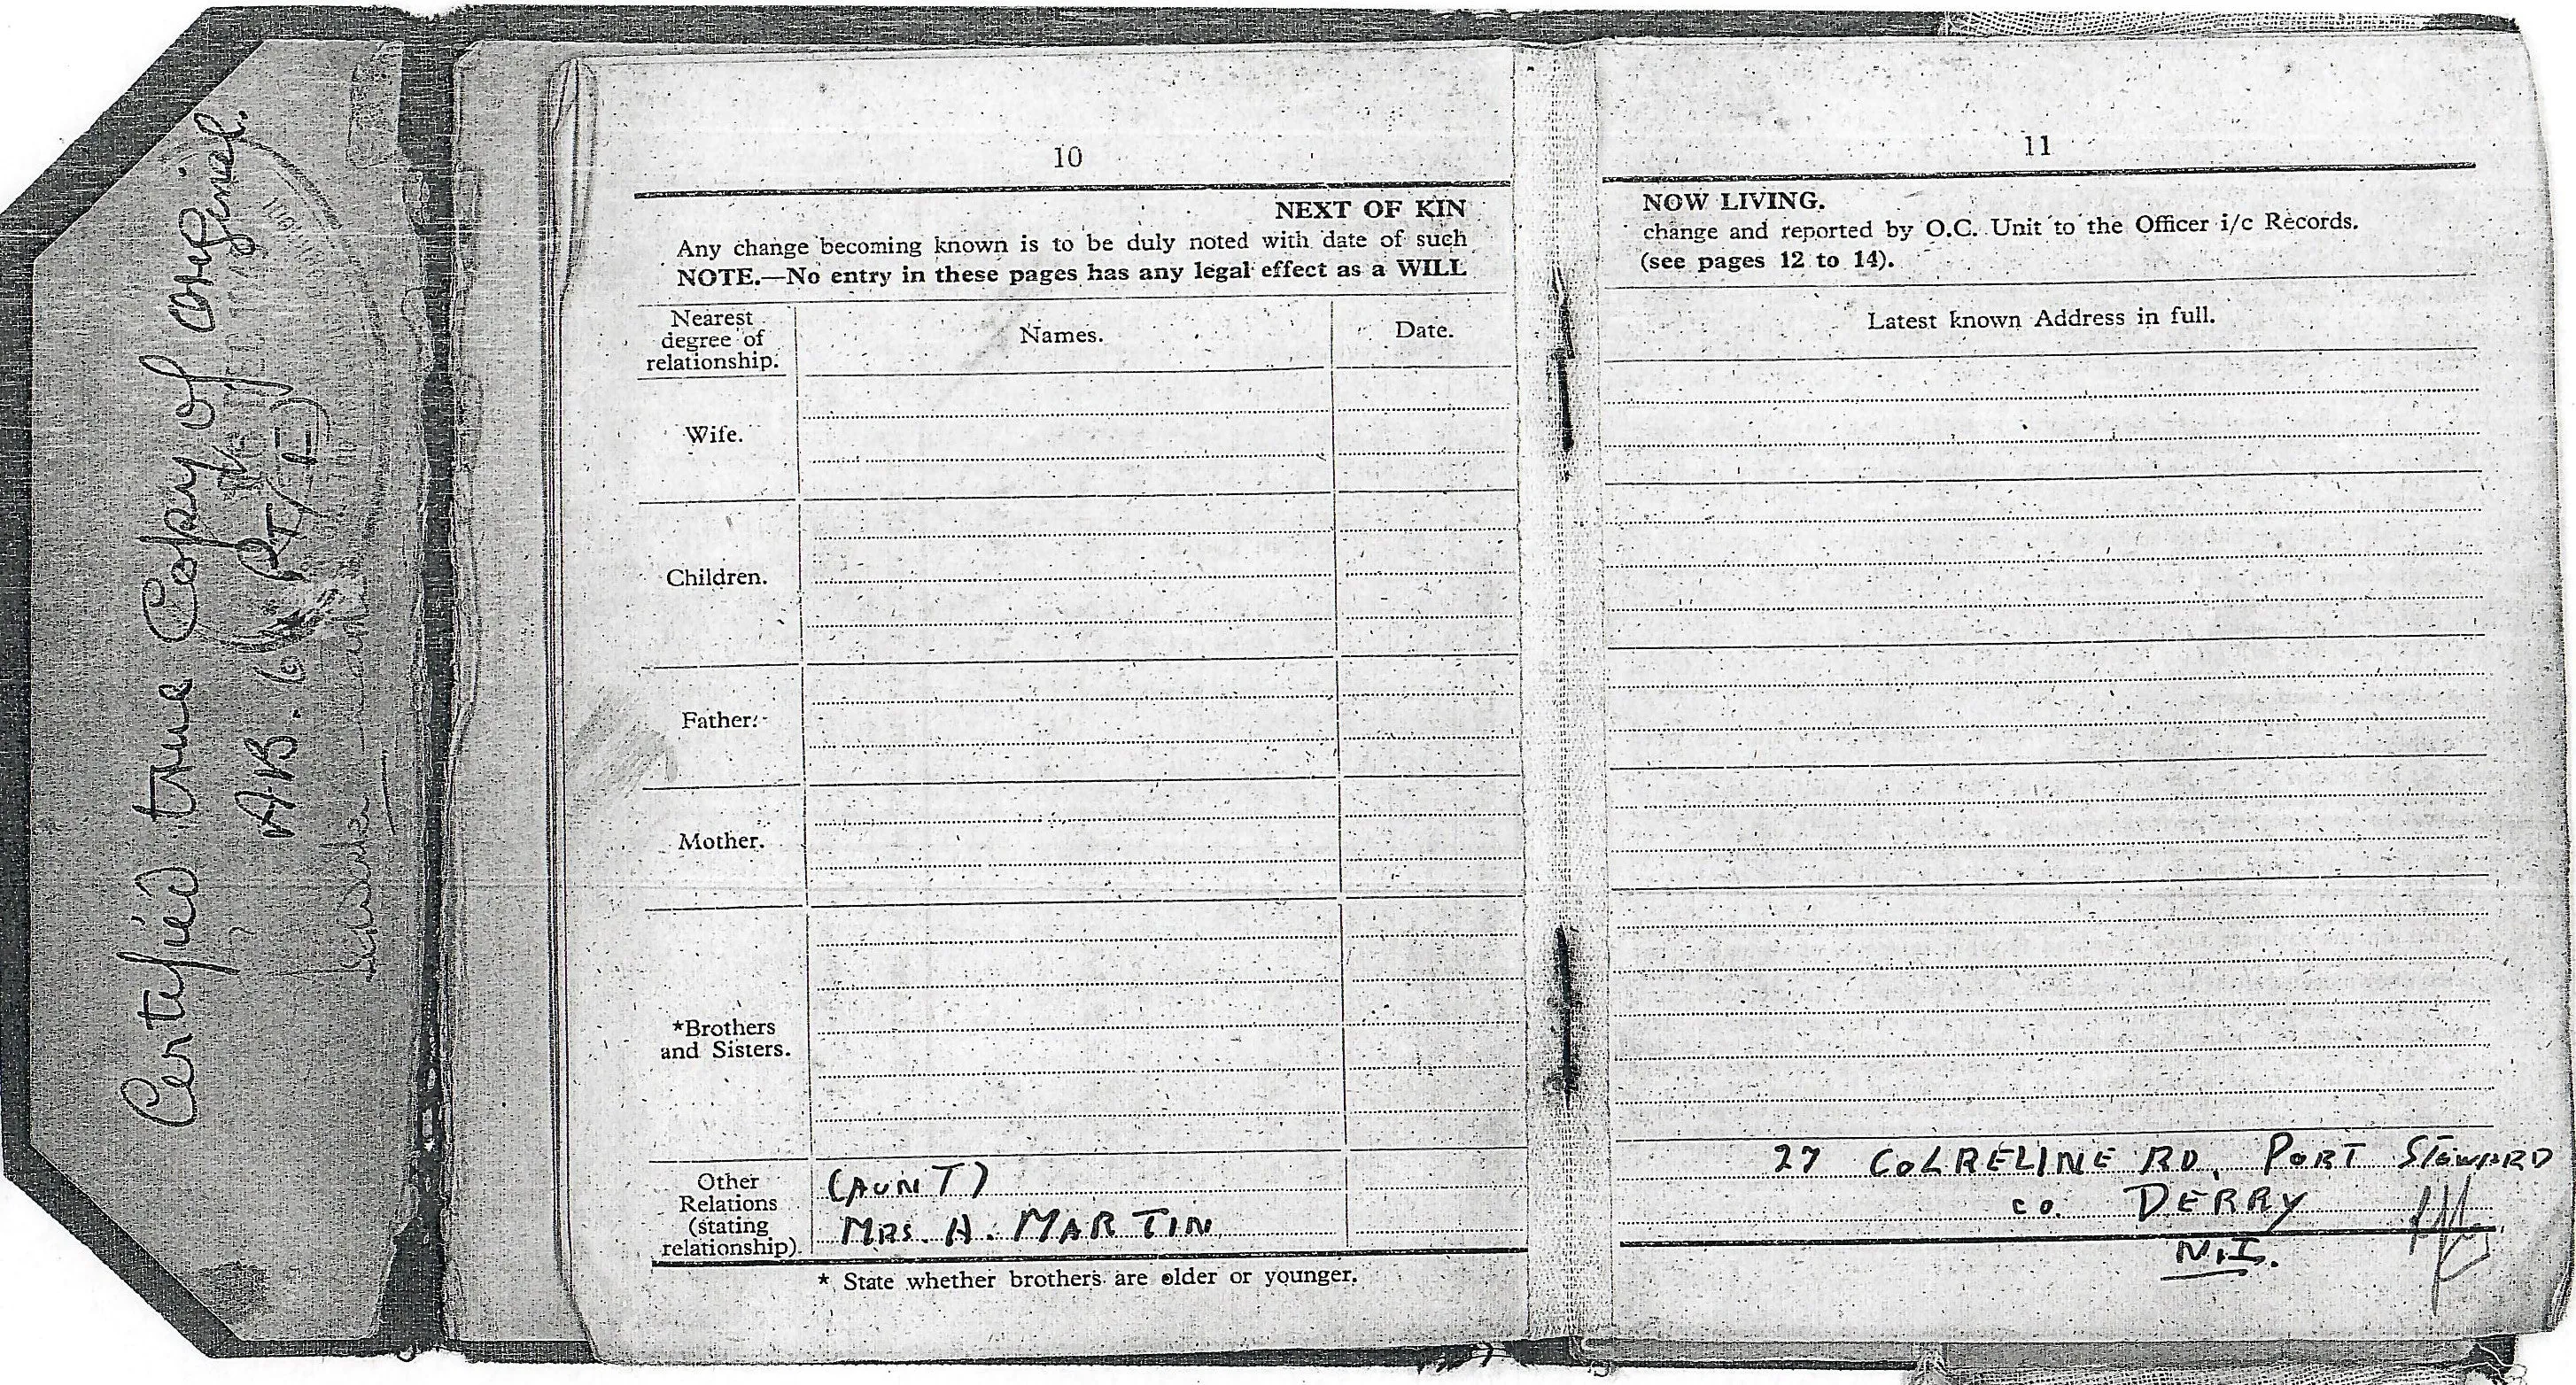 Certified true Copy of original.
AB. 64 (PT I)
10
NEXT OF KIN
Any change becoming known is to be duly noted with date of such
NOTE.—No entry in these pages has any legal effect as a WILL
Nearest
degree of
relationship.
Names.
Date.
Wife.
Children.
Father.
Mother.
*Brothers
and Sisters.
Other
Relations
(stating
relationship).
(AUNT)
MRS. H. MARTIN
* State whether brothers are older or younger.
11
NOW LIVING.
change and reported by O.C. Unit to the Officer i/c Records.
(see pages 12 to 14).
Latest known Address in full.
27 COLRELINE RD, PORT STEWARD
CO. DERRY
N.I.